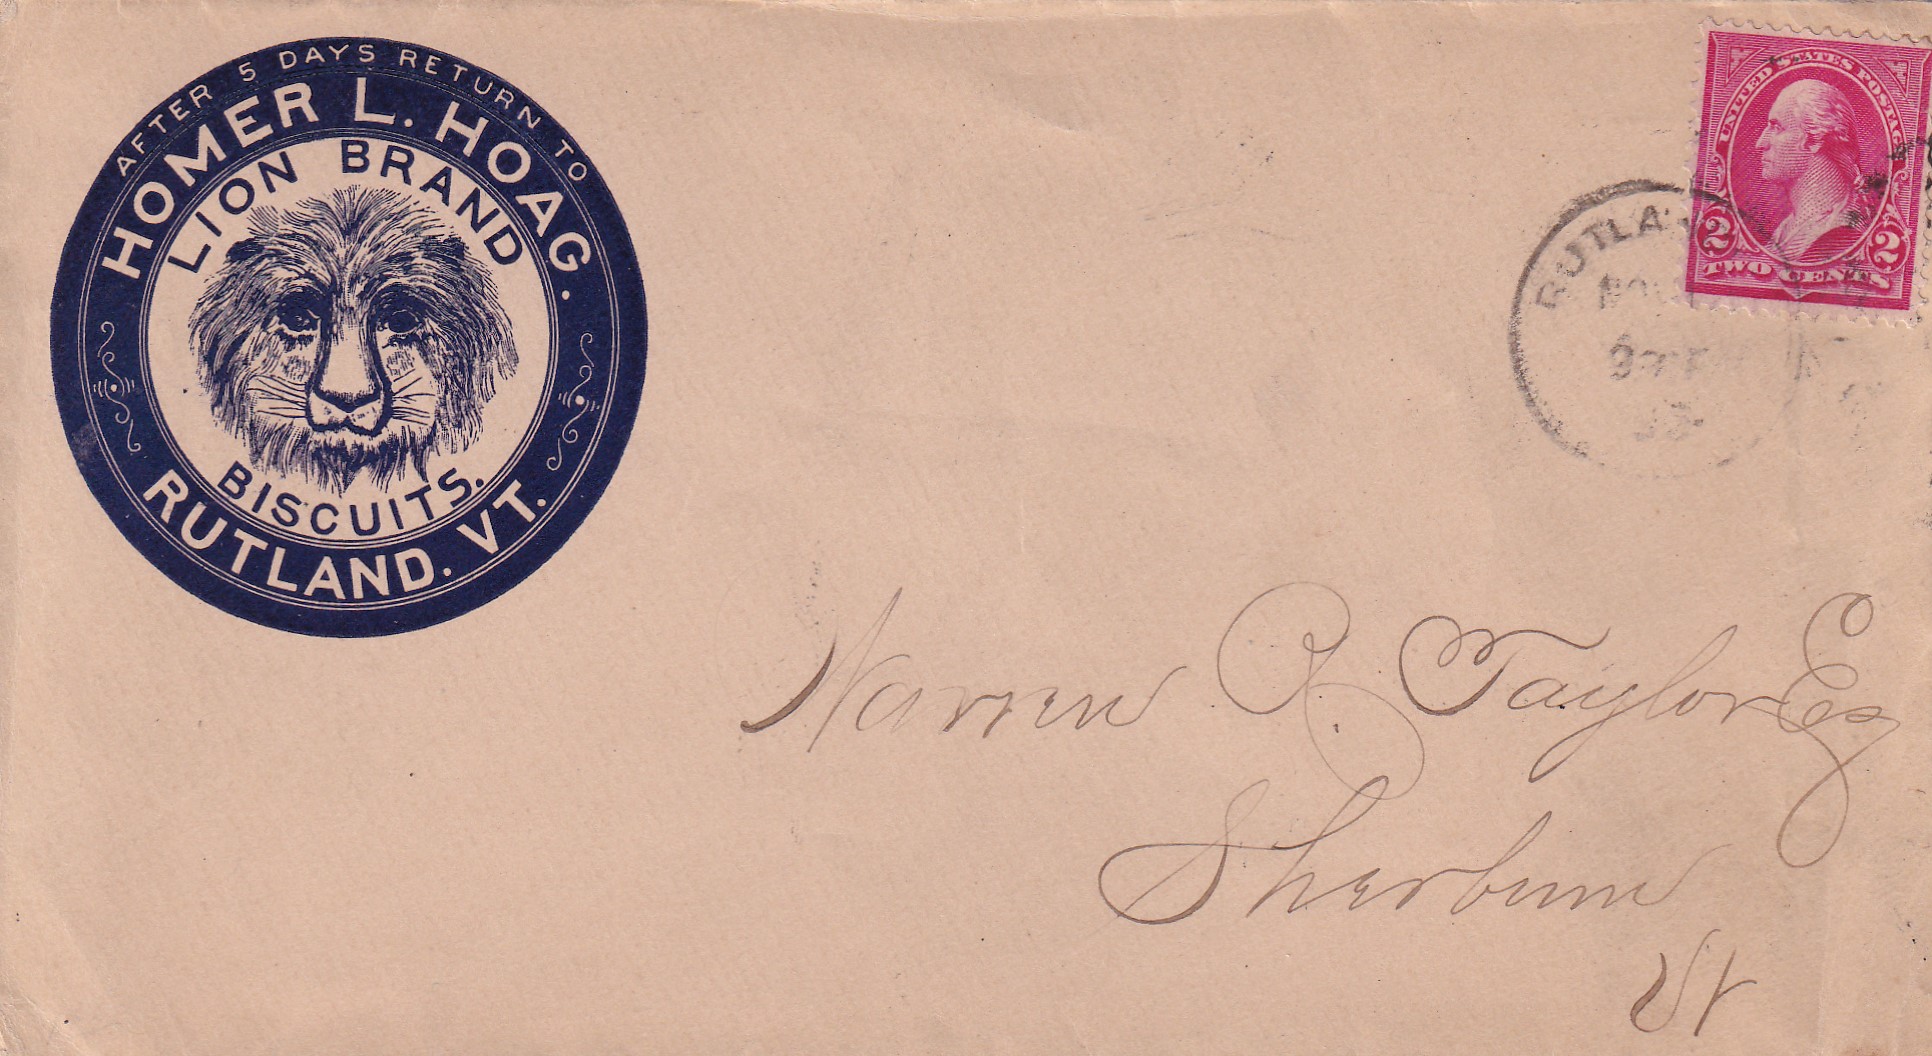 AFTER 5 DAYS RETURN TO
HOMER L. HOAG.
LION BRAND
BISCUITS.
RUTLAND. VT.
UNITED STATES POSTAGE
2 2
TWO CENTS
RUTLA
Warren R Taylor Esq
Sherburne
Vt